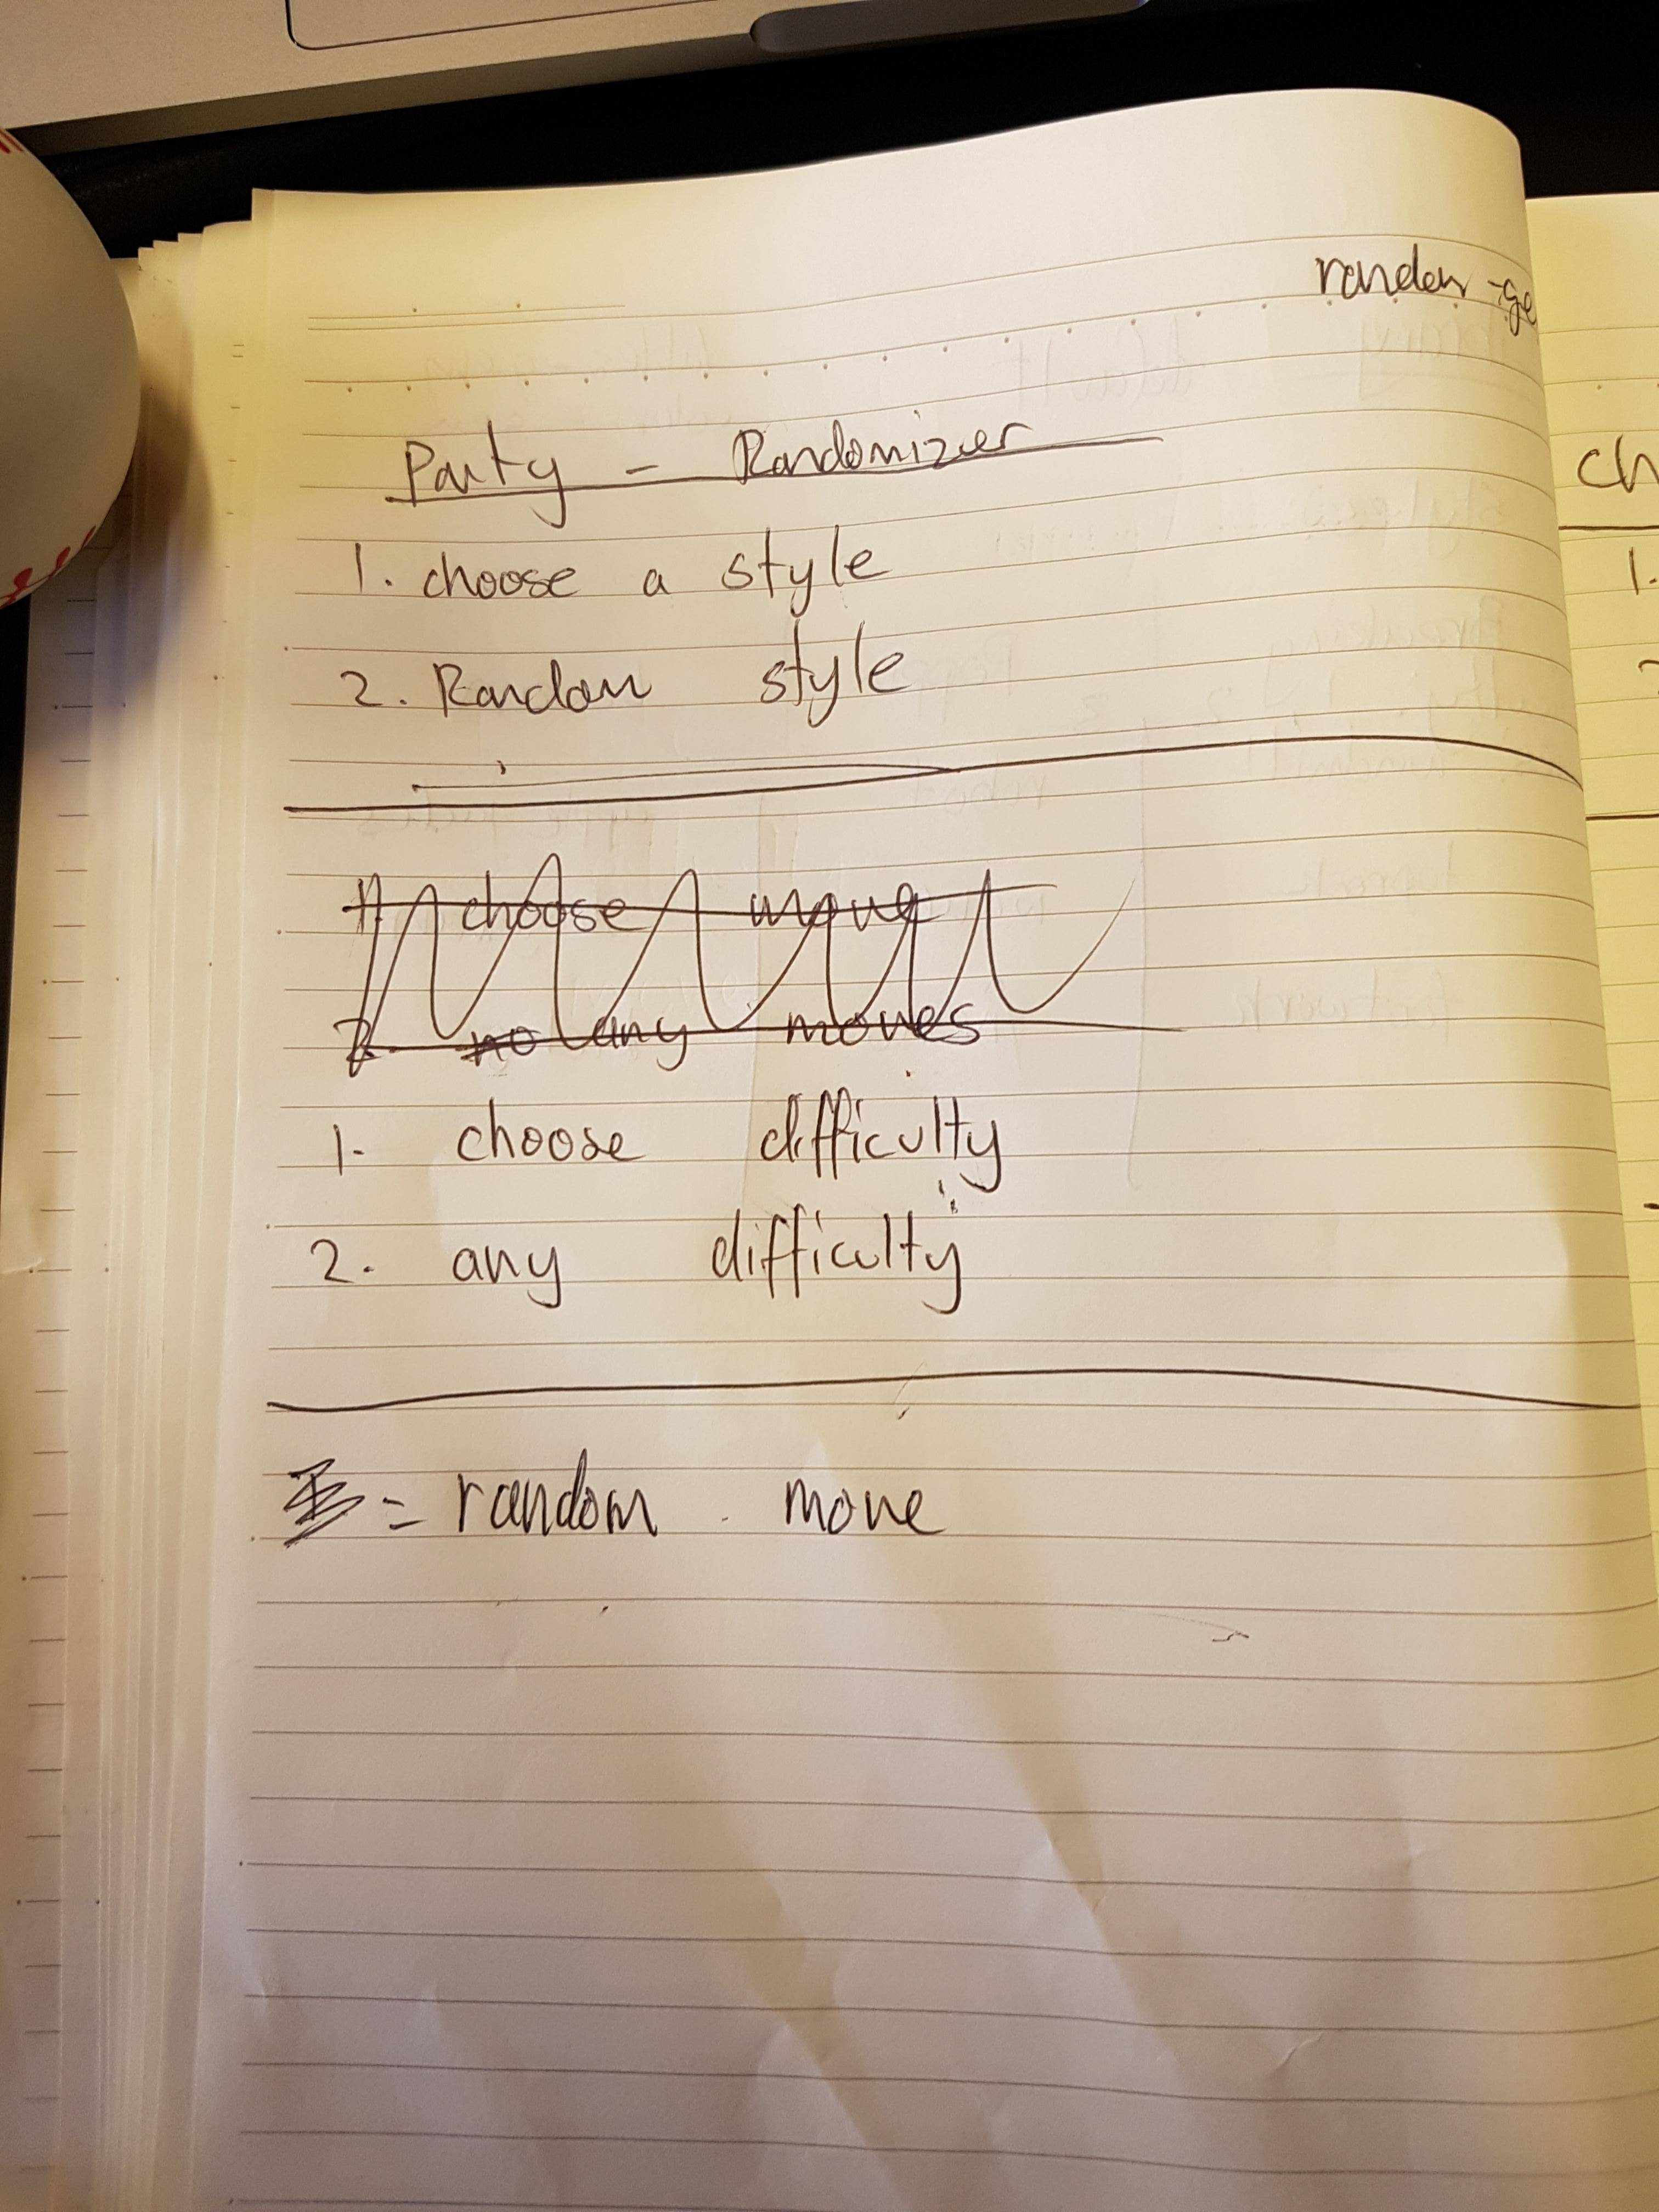 random-ge
Party - Randomizer
1. choose a style
2. Random style
1. choose move
2. no any moves
1. choose difficulty
2. any difficulty
= random move
ch
1.